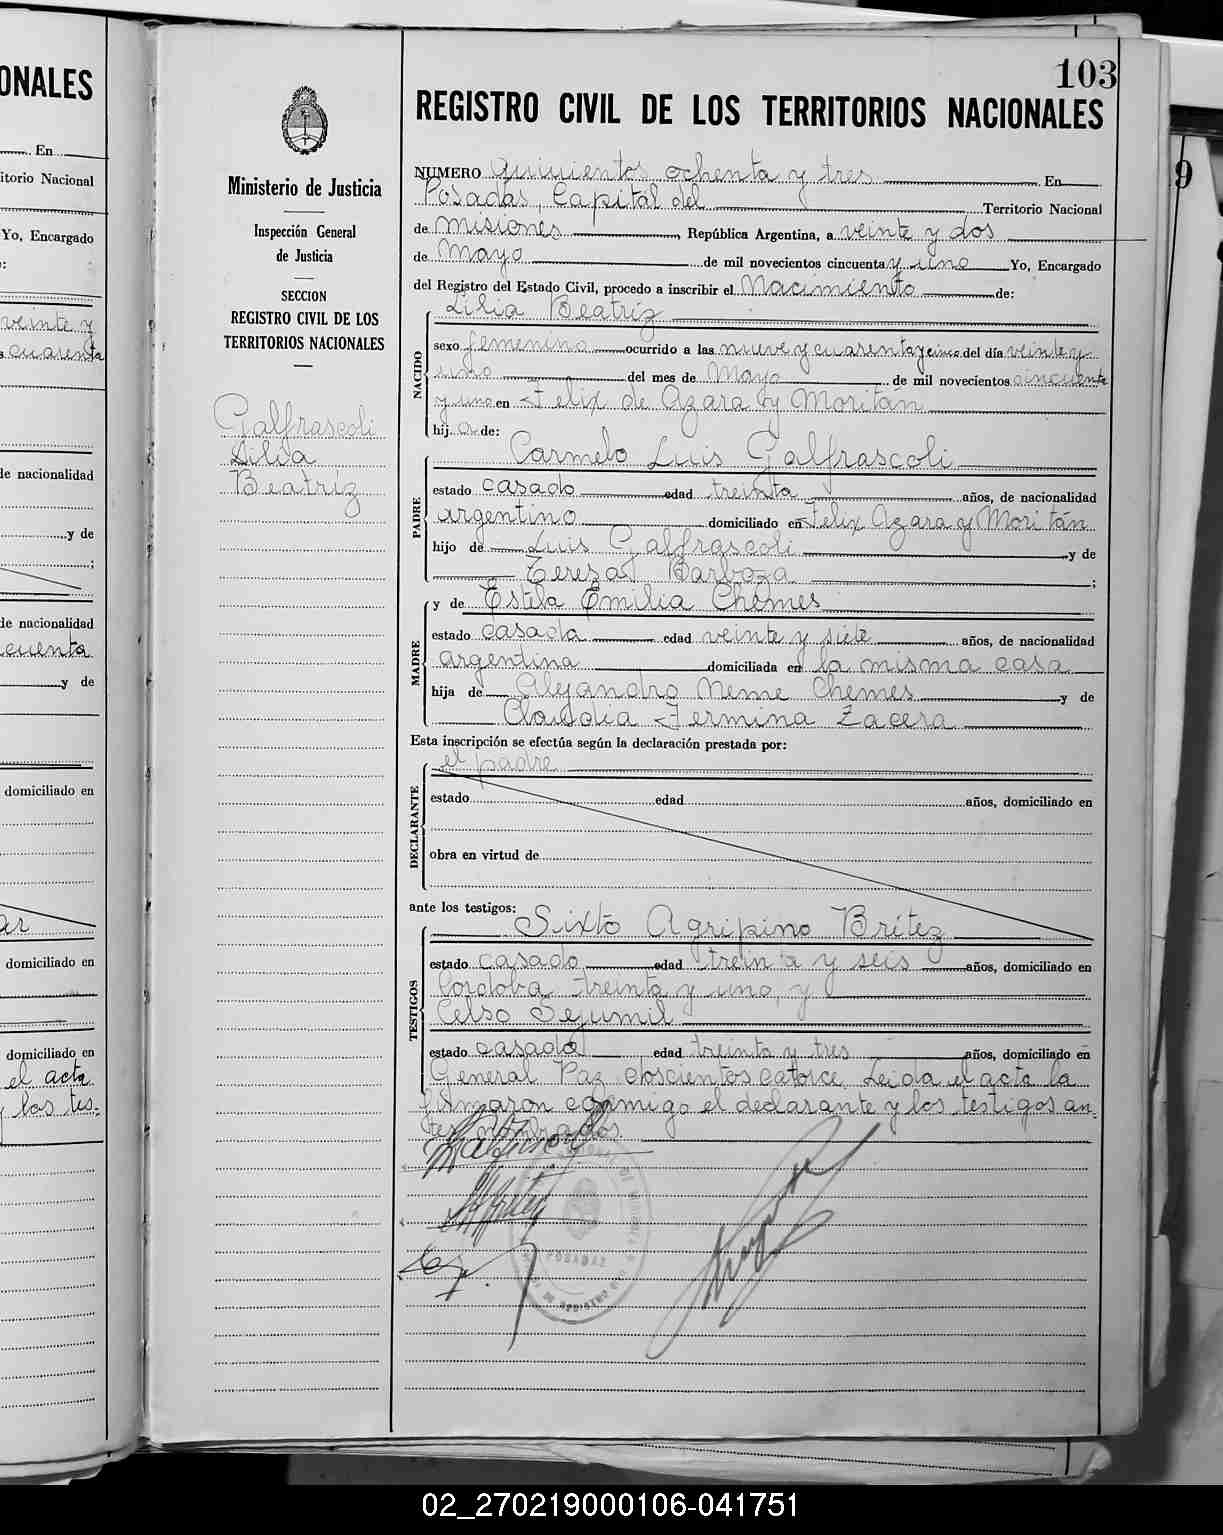 ONALES
En
itorio Nacional
Yo, Encargado
veinte y
cuarenta
de nacionalidad
y de
de nacionalidad
cuenta
y de
domiciliado en
domiciliado en
domiciliado en
el acta
y los tes-
Ministerio de Justicia
Inspección General
de Justicia
SECCION
REGISTRO CIVIL DE LOS
TERRITORIOS NACIONALES
Galfrascoli
Lilia
Beatriz
103
REGISTRO CIVIL DE LOS TERRITORIOS NACIONALES
NUMERO quinientos ochenta y tres En
Posadas, Capital del Territorio Nacional
de Misiones, República Argentina, a veinte y dos
de Mayo de mil novecientos cincuenta y uno Yo, Encargado
del Registro del Estado Civil, procedo a inscribir el Nacimiento de:
Lilia Beatriz
NACIDO
sexo femenino ocurrido a las nueve y cuarenta y cinco del día veinte y
uno del mes de Mayo de mil novecientos cincuenta
y uno en Felix de Azara y Moritán
hij a de:
Carmelo Luis Galfrascoli
PADRE
estado casado edad treinta años, de nacionalidad
argentino domiciliado en Felix Azara y Moritán
hijo de Luis Galfrascoli y de
Teresa Barboza ;
y de Estela Emilia Chemes
MADRE
estado casada edad veinte y siete años, de nacionalidad
argentina domiciliada en la misma casa
hija de Alejandro Neme Chemes y de
Claudia Fermina Zacera
Esta inscripción se efectúa según la declaración prestada por:
el padre
DECLARANTE
estado edad años, domiciliado en
obra en virtud de
ante los testigos:
Sixto Agripino Britez
TESTIGOS
estado casado edad treinta y seis años, domiciliado en
Cordoba treinta y uno, y
Celso Sejumil
estado casado edad treinta y tres años, domiciliado en
General Paz doscientos catorce. Leida el acta la
firmaron conmigo el declarante y los testigos an-
tes nombrados
POSADAS
9
02_270219000106-041751